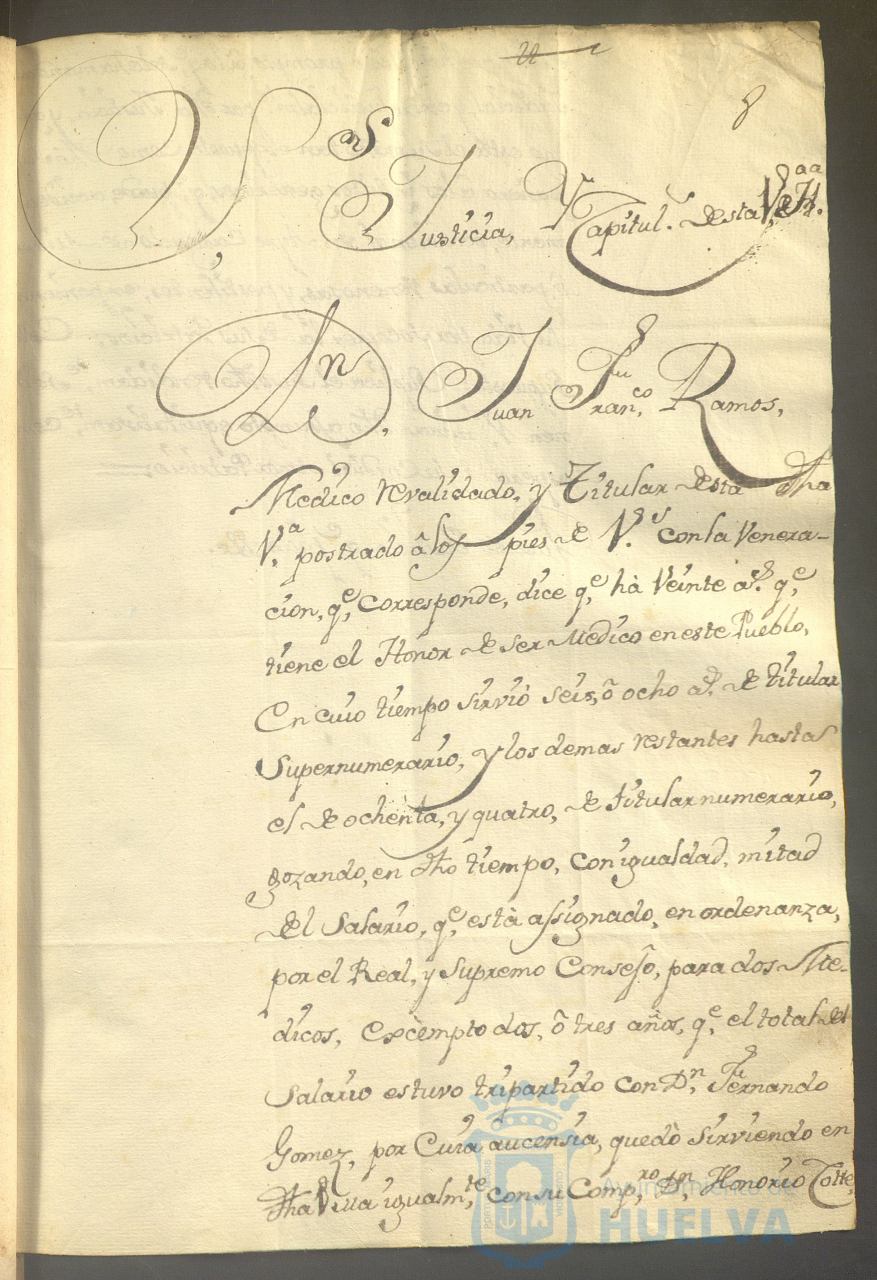 8
S.res Justicia, y Capitul.s desta V.a de H.
D.n Juan Fran.co Ramos,
Medico revalidado, y Titular desta dha
V.a postrado â los pies de V.s con la Venera-
cion, q.e corresponde, dice q.e hà Veinte a.s q.e
tiene el Honor de ser Medico en este Pueblo,
En cuio tiempo sirviò seis, ô ocho a.s de titular
Supernumerario, y los demas restantes hasta
el de ochenta, y quatro, de titular numerario,
gozando, en dho tiempo, con igualdad, mitad
del Salario, q.e està assignado, en ordenanza,
por el Real, y Supremo Consejo, para dos Me-
dicos, excèmpto dos, ô tres años, q.e el total del
Salario estuvo tripartido con D.n Fernando
Gomez, por Cuia aucensia, quedò sirviendo en
dha Villa igualm.te con su Comp.ro D.n Honorio
Ayuntamiento de
HUELVA